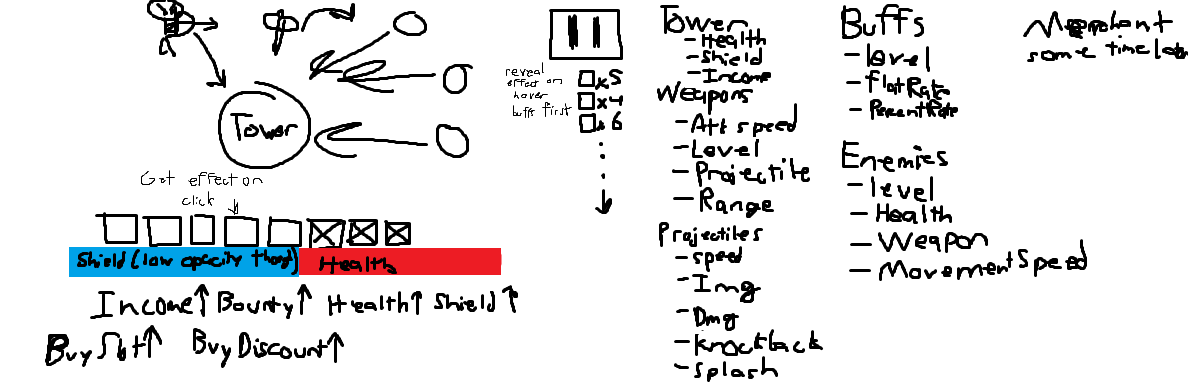 Tower
Got effect on
click
Shield (low opacity though)
Health
Income↑ Bounty↑ Health↑ Shield↑
Buy Slot↑ Buy Discount↑
reveal
effect on
hover
buffs first
x5
x4
x6
Tower
- Health
- Shield
- Income
Weapons
- Att speed
- Level
- Projectile
- Range
Projectiles
- speed
- Img
- Dmg
- knockback
- splash
Buffs
- level
- flat Rate
- Percent Rate
Enemies
- level
- Health
- Weapon
- Movement Speed
some time